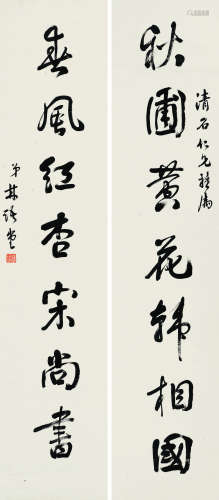 清石仁兄雅属
秋圃黄花韩相国
春风红杏宋尚书
弟林语堂